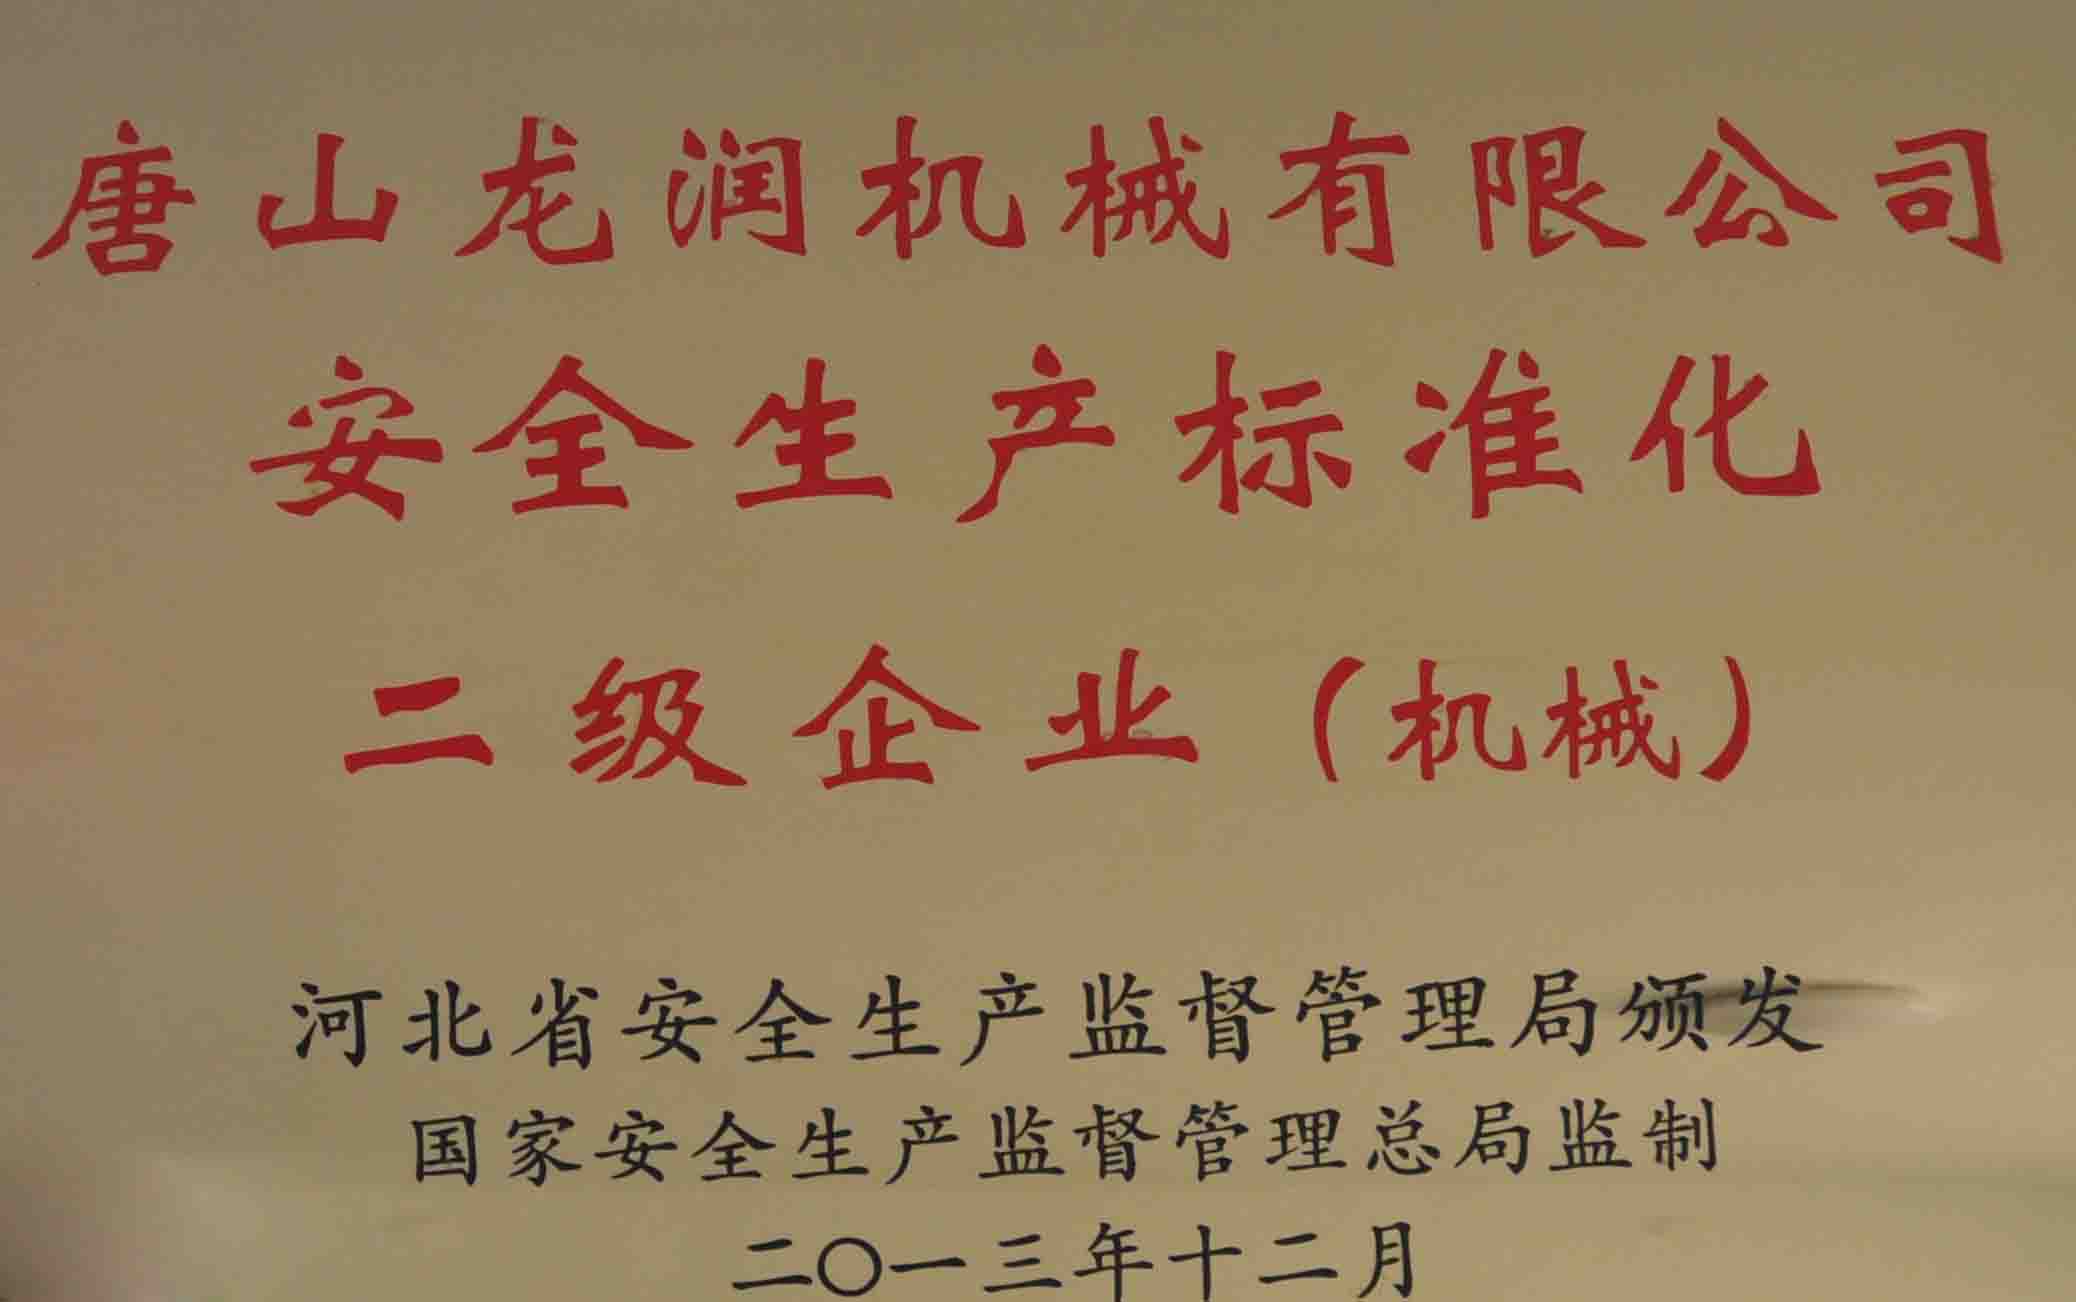 唐山龙润机械有限公司
安全生产标准化
二级企业(机械)
河北省安全生产监督管理局颁发
国家安全生产监督管理总局监制
二〇一三年十二月